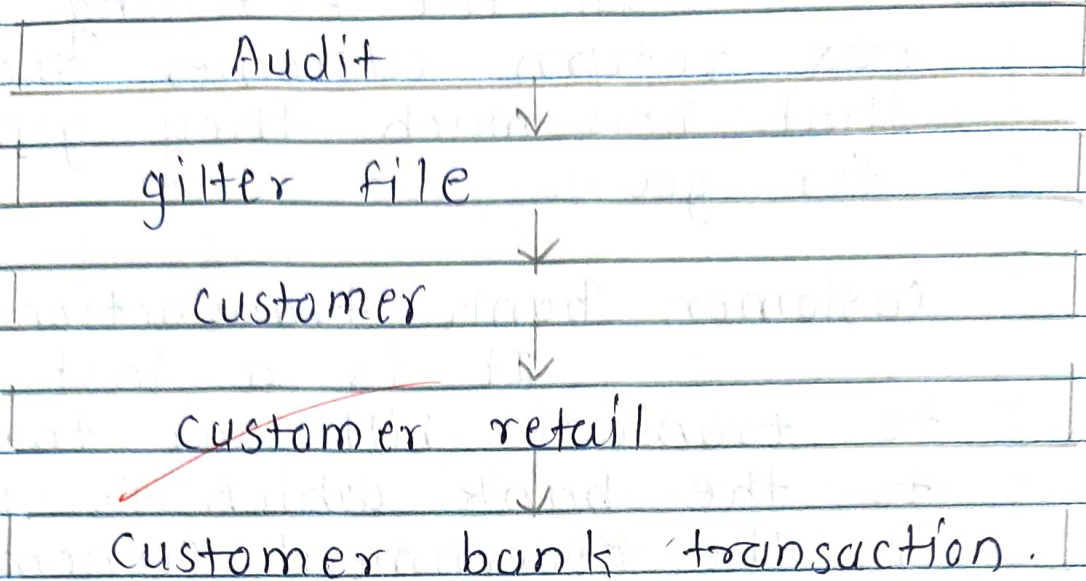 Audit
gilter file
customer
customer retail
customer bank transaction.